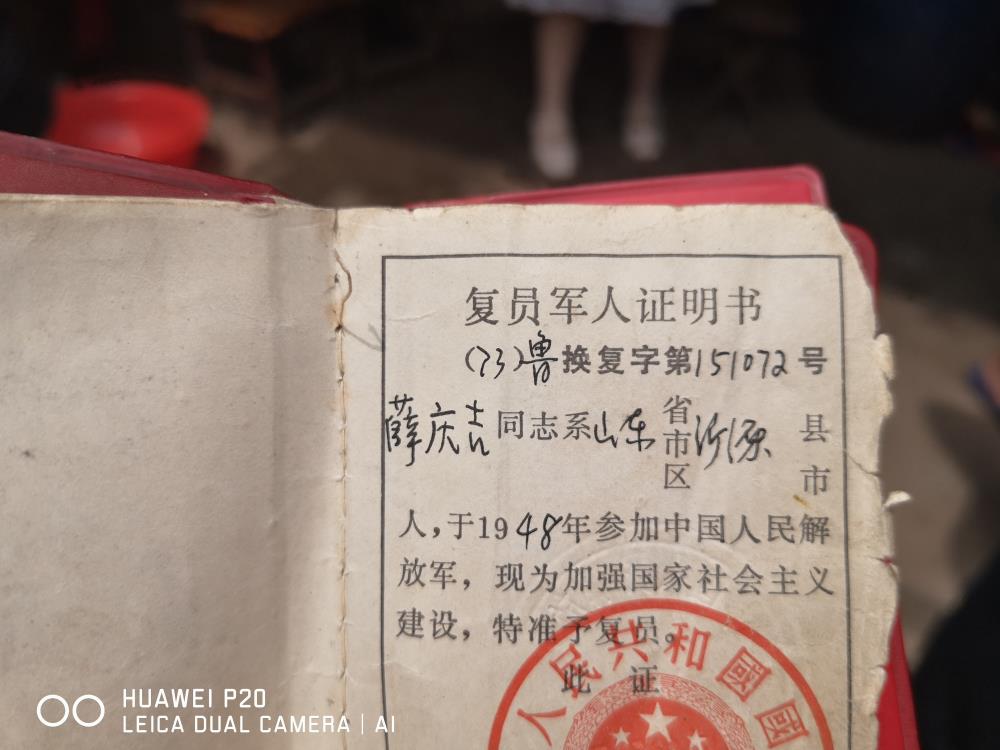 复员军人证明书
(73)鲁换复字第151072号
薛庆吉同志系山东省市区沂源县市
人,于1948年参加中国人民解
放军,现为加强国家社会主义
建设,特准予复员。
此证
人民共和國國
HUAWEI P20
LEICA DUAL CAMERA | AI